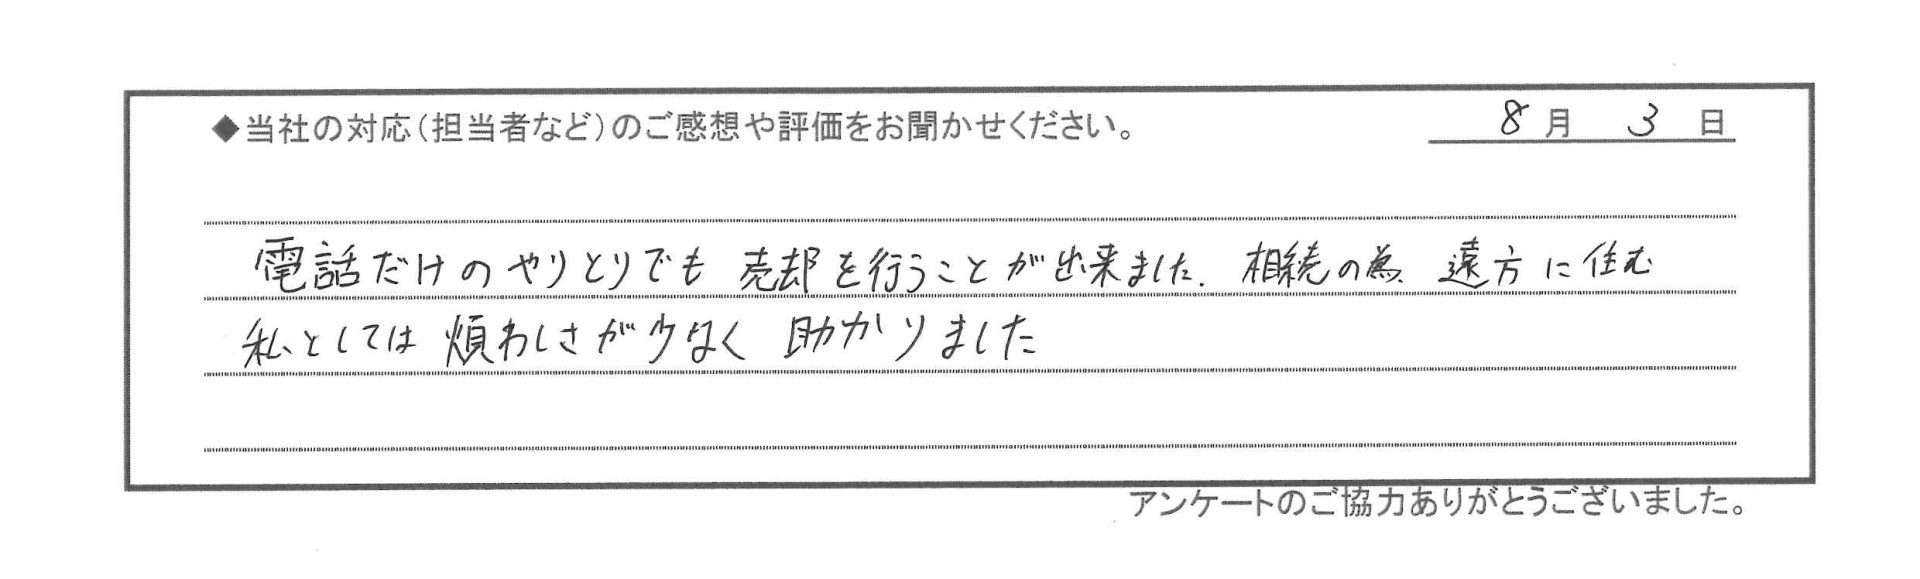 ◆当社の対応(担当者など)のご感想や評価をお聞かせください。 8月 3日
電話だけのやりとりでも 売却を行うことが出来ました. 相続の為 遠方に住む
私としては 煩わしさが少なく 助かりました
アンケートのご協力ありがとうございました。